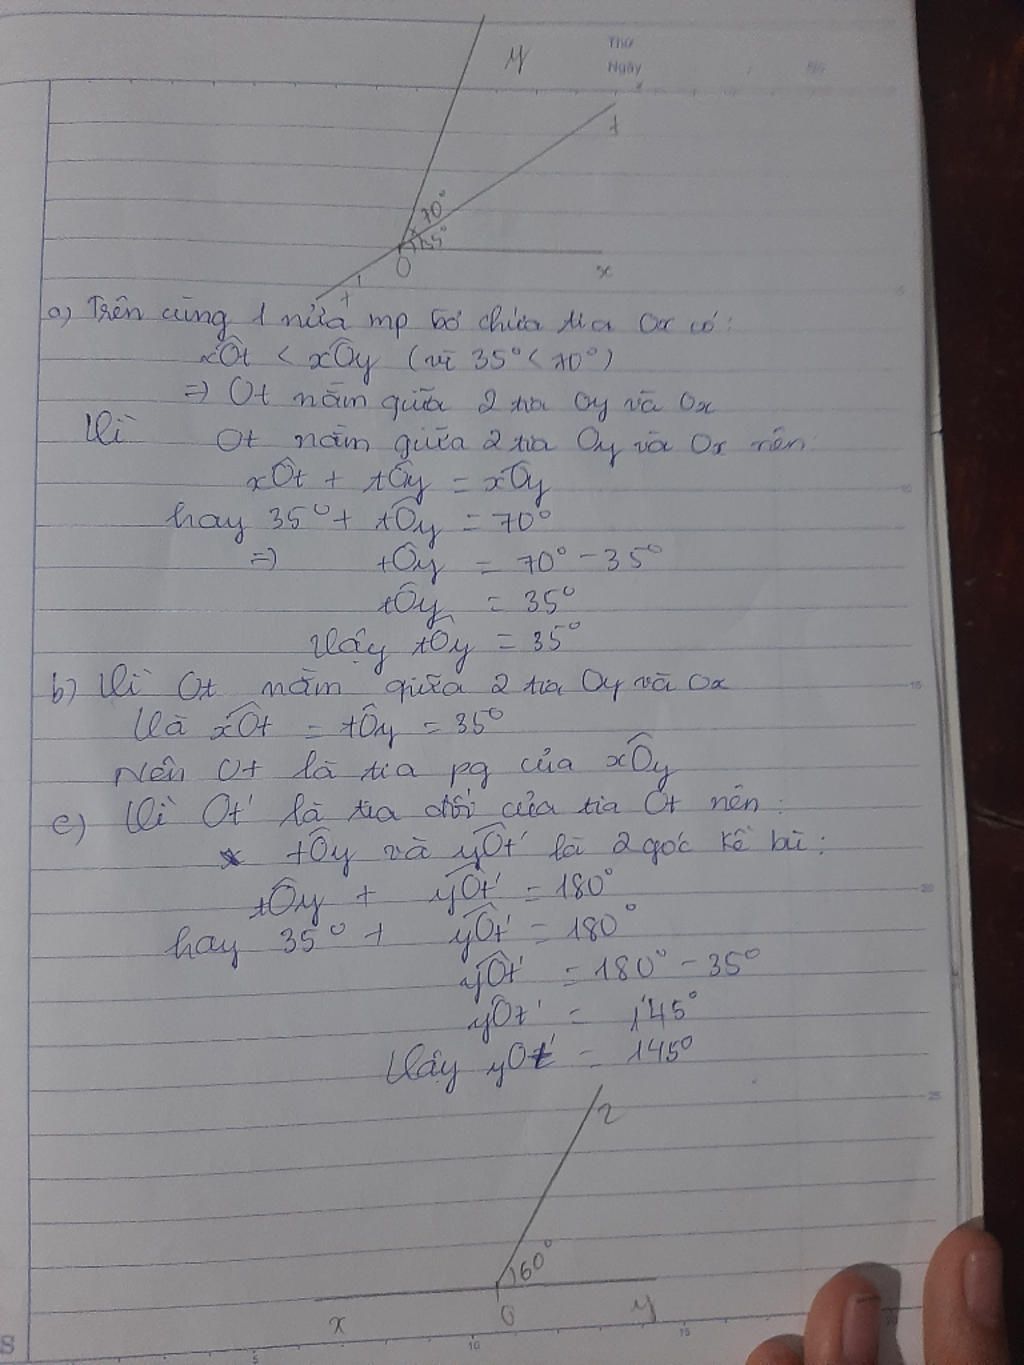 Thứ
Ngày
y
t
70°
35°
O
x
t'
a) Trên cùng 1 nửa mp bờ chứa tia Ox có:
xÔt < xÔy (vì 35° < 70°)
=> Ot nằm giữa 2 tia Oy và Ox
Vì Ot nằm giữa 2 tia Oy và Ox nên:
xÔt + tÔy = xÔy
hay 35° + tÔy = 70°
=> tÔy = 70° - 35°
tÔy = 35°
Vậy tÔy = 35°
b) Vì Ot nằm giữa 2 tia Oy và Ox
Và xÔt = tÔy = 35°
Nên Ot là tia pg của xÔy
c) Vì Ot' là tia đối của tia Ot nên:
tÔy và yÔt' là 2 góc kề bù:
tÔy + yÔt' = 180°
hay 35° + yÔt' = 180°
yÔt' = 180° - 35°
yÔt' = 145°
Vậy yOt' = 145°
z
60°
x
O
y
S
5
10
15
10
15
20
25